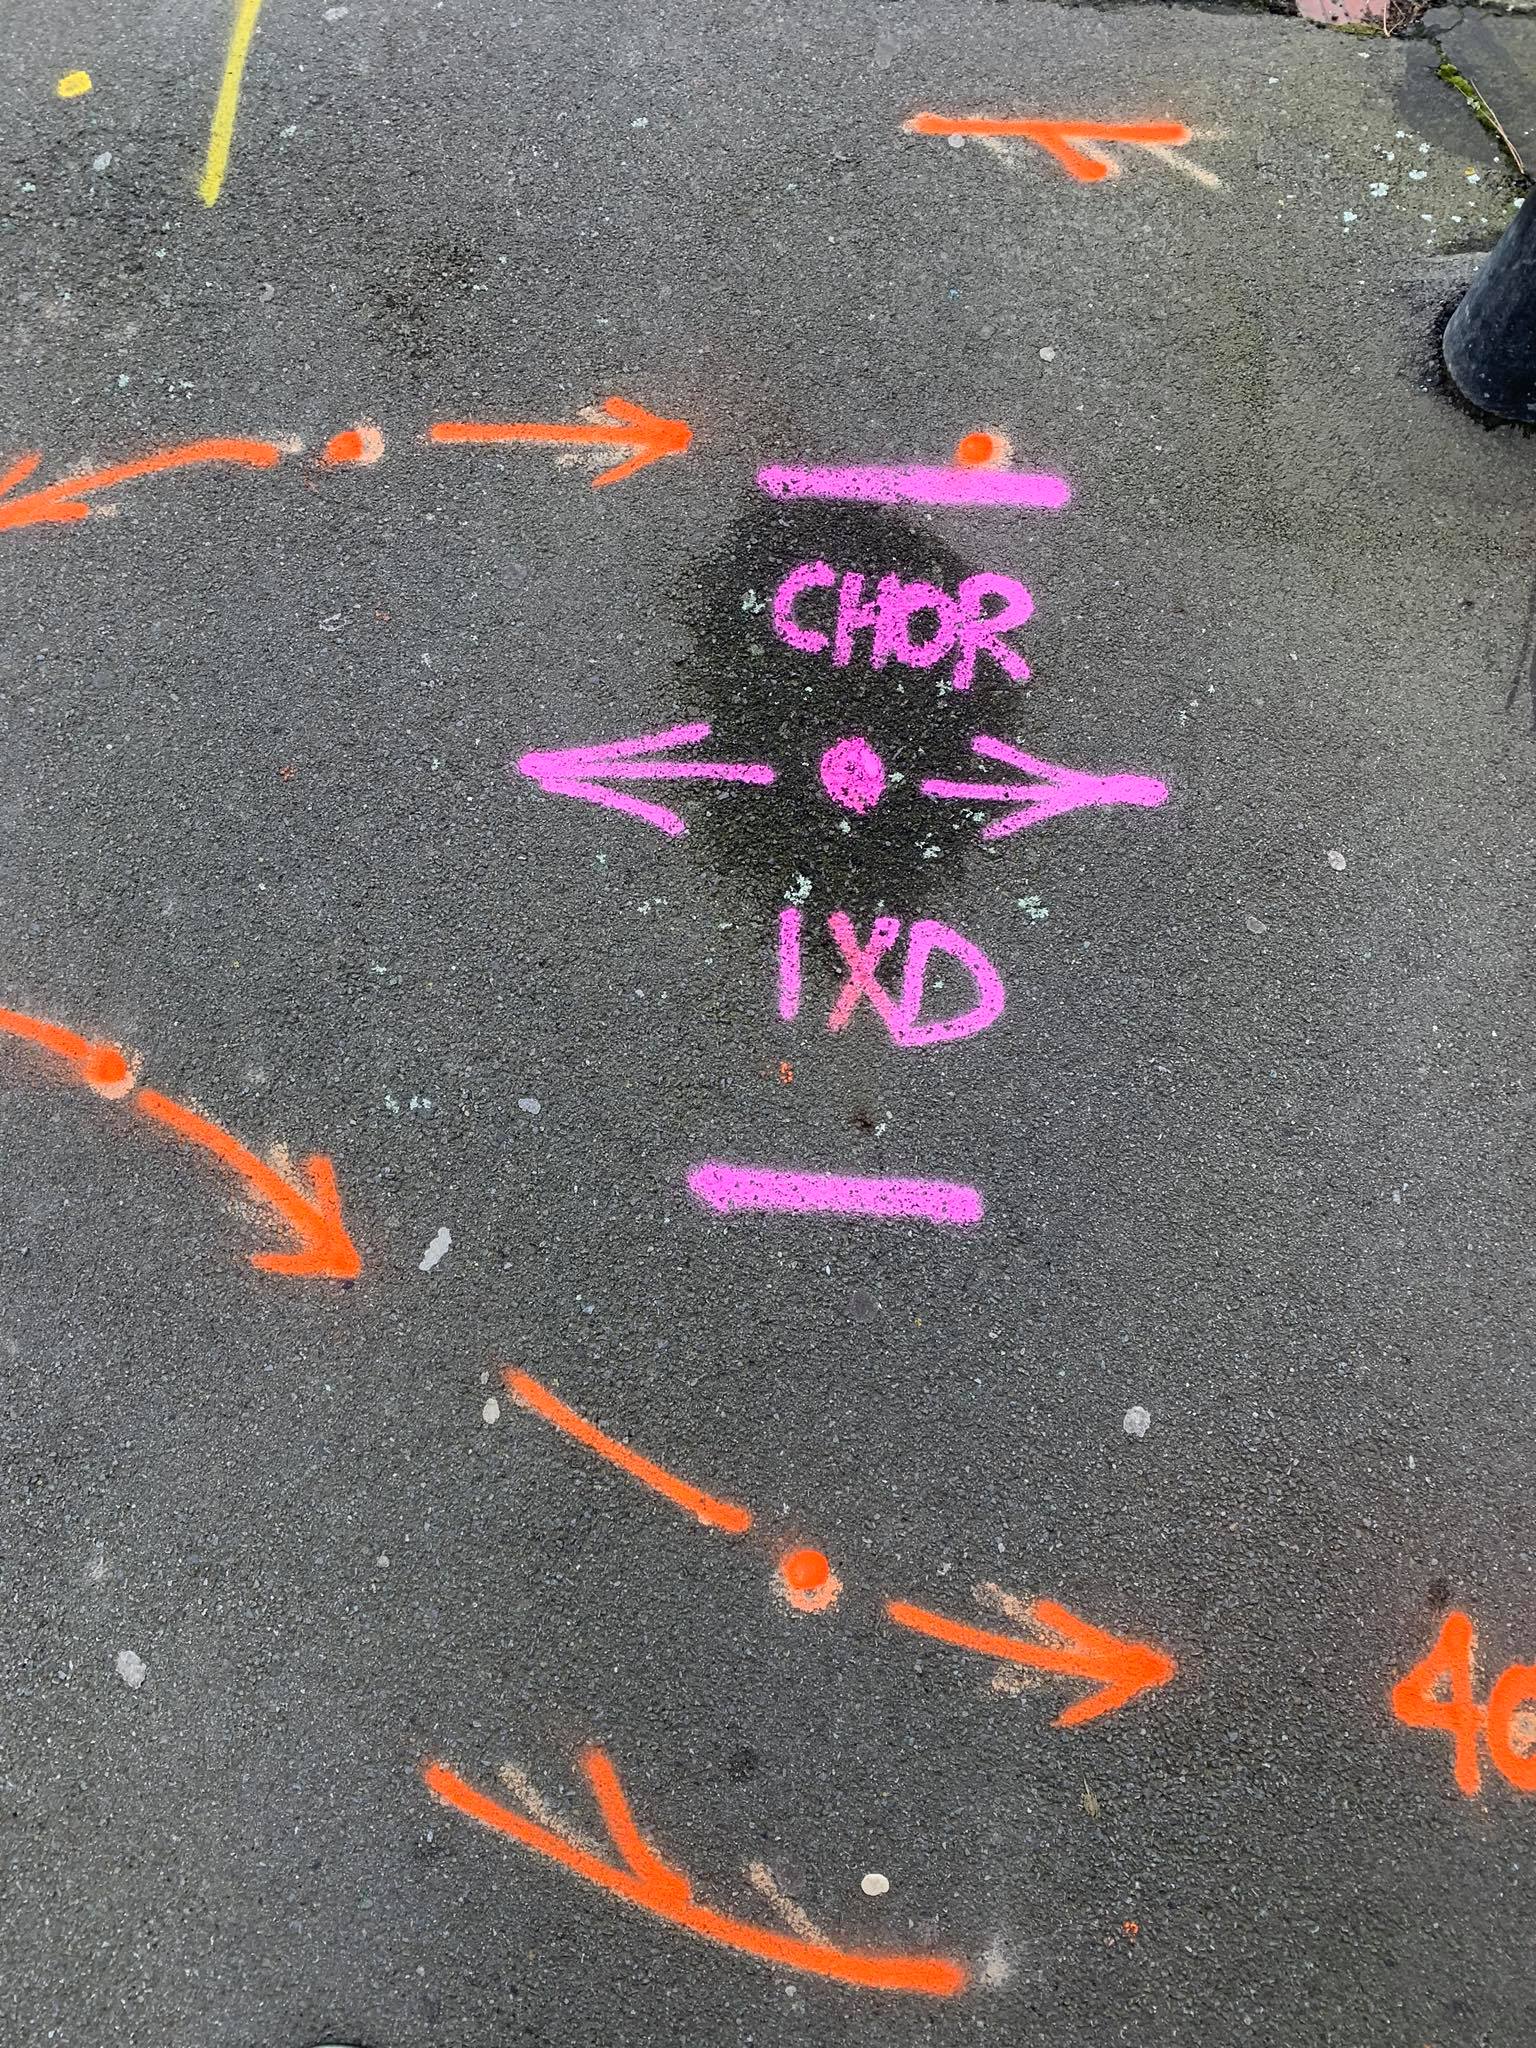 CHOR
1XD
40